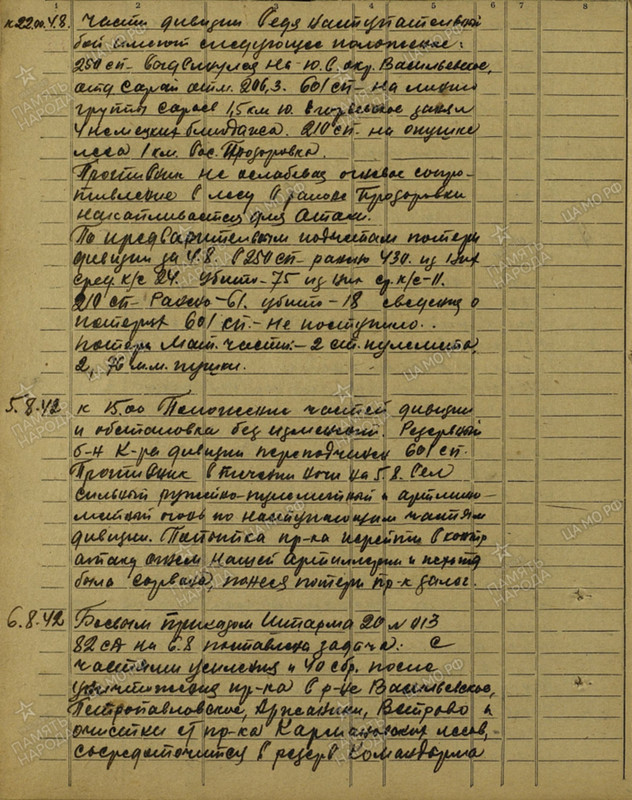 1 2 3 4 5 6 7 8
к 22.00 4.8. части дивизии ведя наступательный
бой имеют следующее положение:
250 сп - выдвинулся на ю.в. окр. Васильевское,
отд. сарай отм. 206,3. 601 сп - на линии
группы сараев 1,5 км ю. занял
4 немецких блиндажа. 210 сп - на опушке
леса 1 км. вос. Прозоровка.
Противник не ослабевая огневое сопро-
тивление в лесу в районе Прозоровки
накапливается для атаки.
По предварительным подсчетам потери
дивизии за 4.8. в 250 сп - ранено 430. из них
сред. к/с 24. убито - 75 из них ср. к/с - 11.
210 сп - Ранено - 61. убито - 18 сведения о
потерях 601 сп. - не поступило.
потери мат. части - 2 ст. пулемета,
2, 76 м.м. пушки.
5.8.42 к 15.00 Положение частей дивизии
и обстановка без изменений. Резервный
б-н К-ра дивизии переподчинен 601 сп.
Противник в течении ночи на 5.8. вел
сильный ружейно-пулеметный и
огонь по наступающим частям
дивизии. Попытка пр-ка перейти в контр
атаку огнем нашей артиллерии и пехоты
была сорвана, понеся потери пр-к залег.
6.8.42 Боевым приказом Штарма 20 № 013
82 сд на 6.8 поставлена задача: с
частями усиления и 40 сбр. после
уничтожения пр-ка в р-не Васильевское,
Петропавловское, Бржаники, Ветрово и
очистки от пр-ка Кармановских лесов,
сосредоточиться в резерв Командарма
ПАМЯТЬ НАРОДА
ЦАМО.РФ